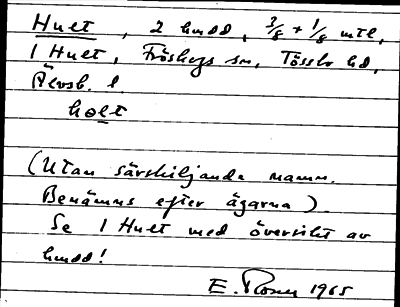 Hult, 2 hmdd, 3/8 + 1/8 mtl,
1 Hult, Fröskogs sn, Tössbo hd,
Älvsb. l
holt
(Utan särskiljande namn.
Benämns efter ägarna).
Se 1 Hult med översikt av
hmdd!
E. Rosén 1965